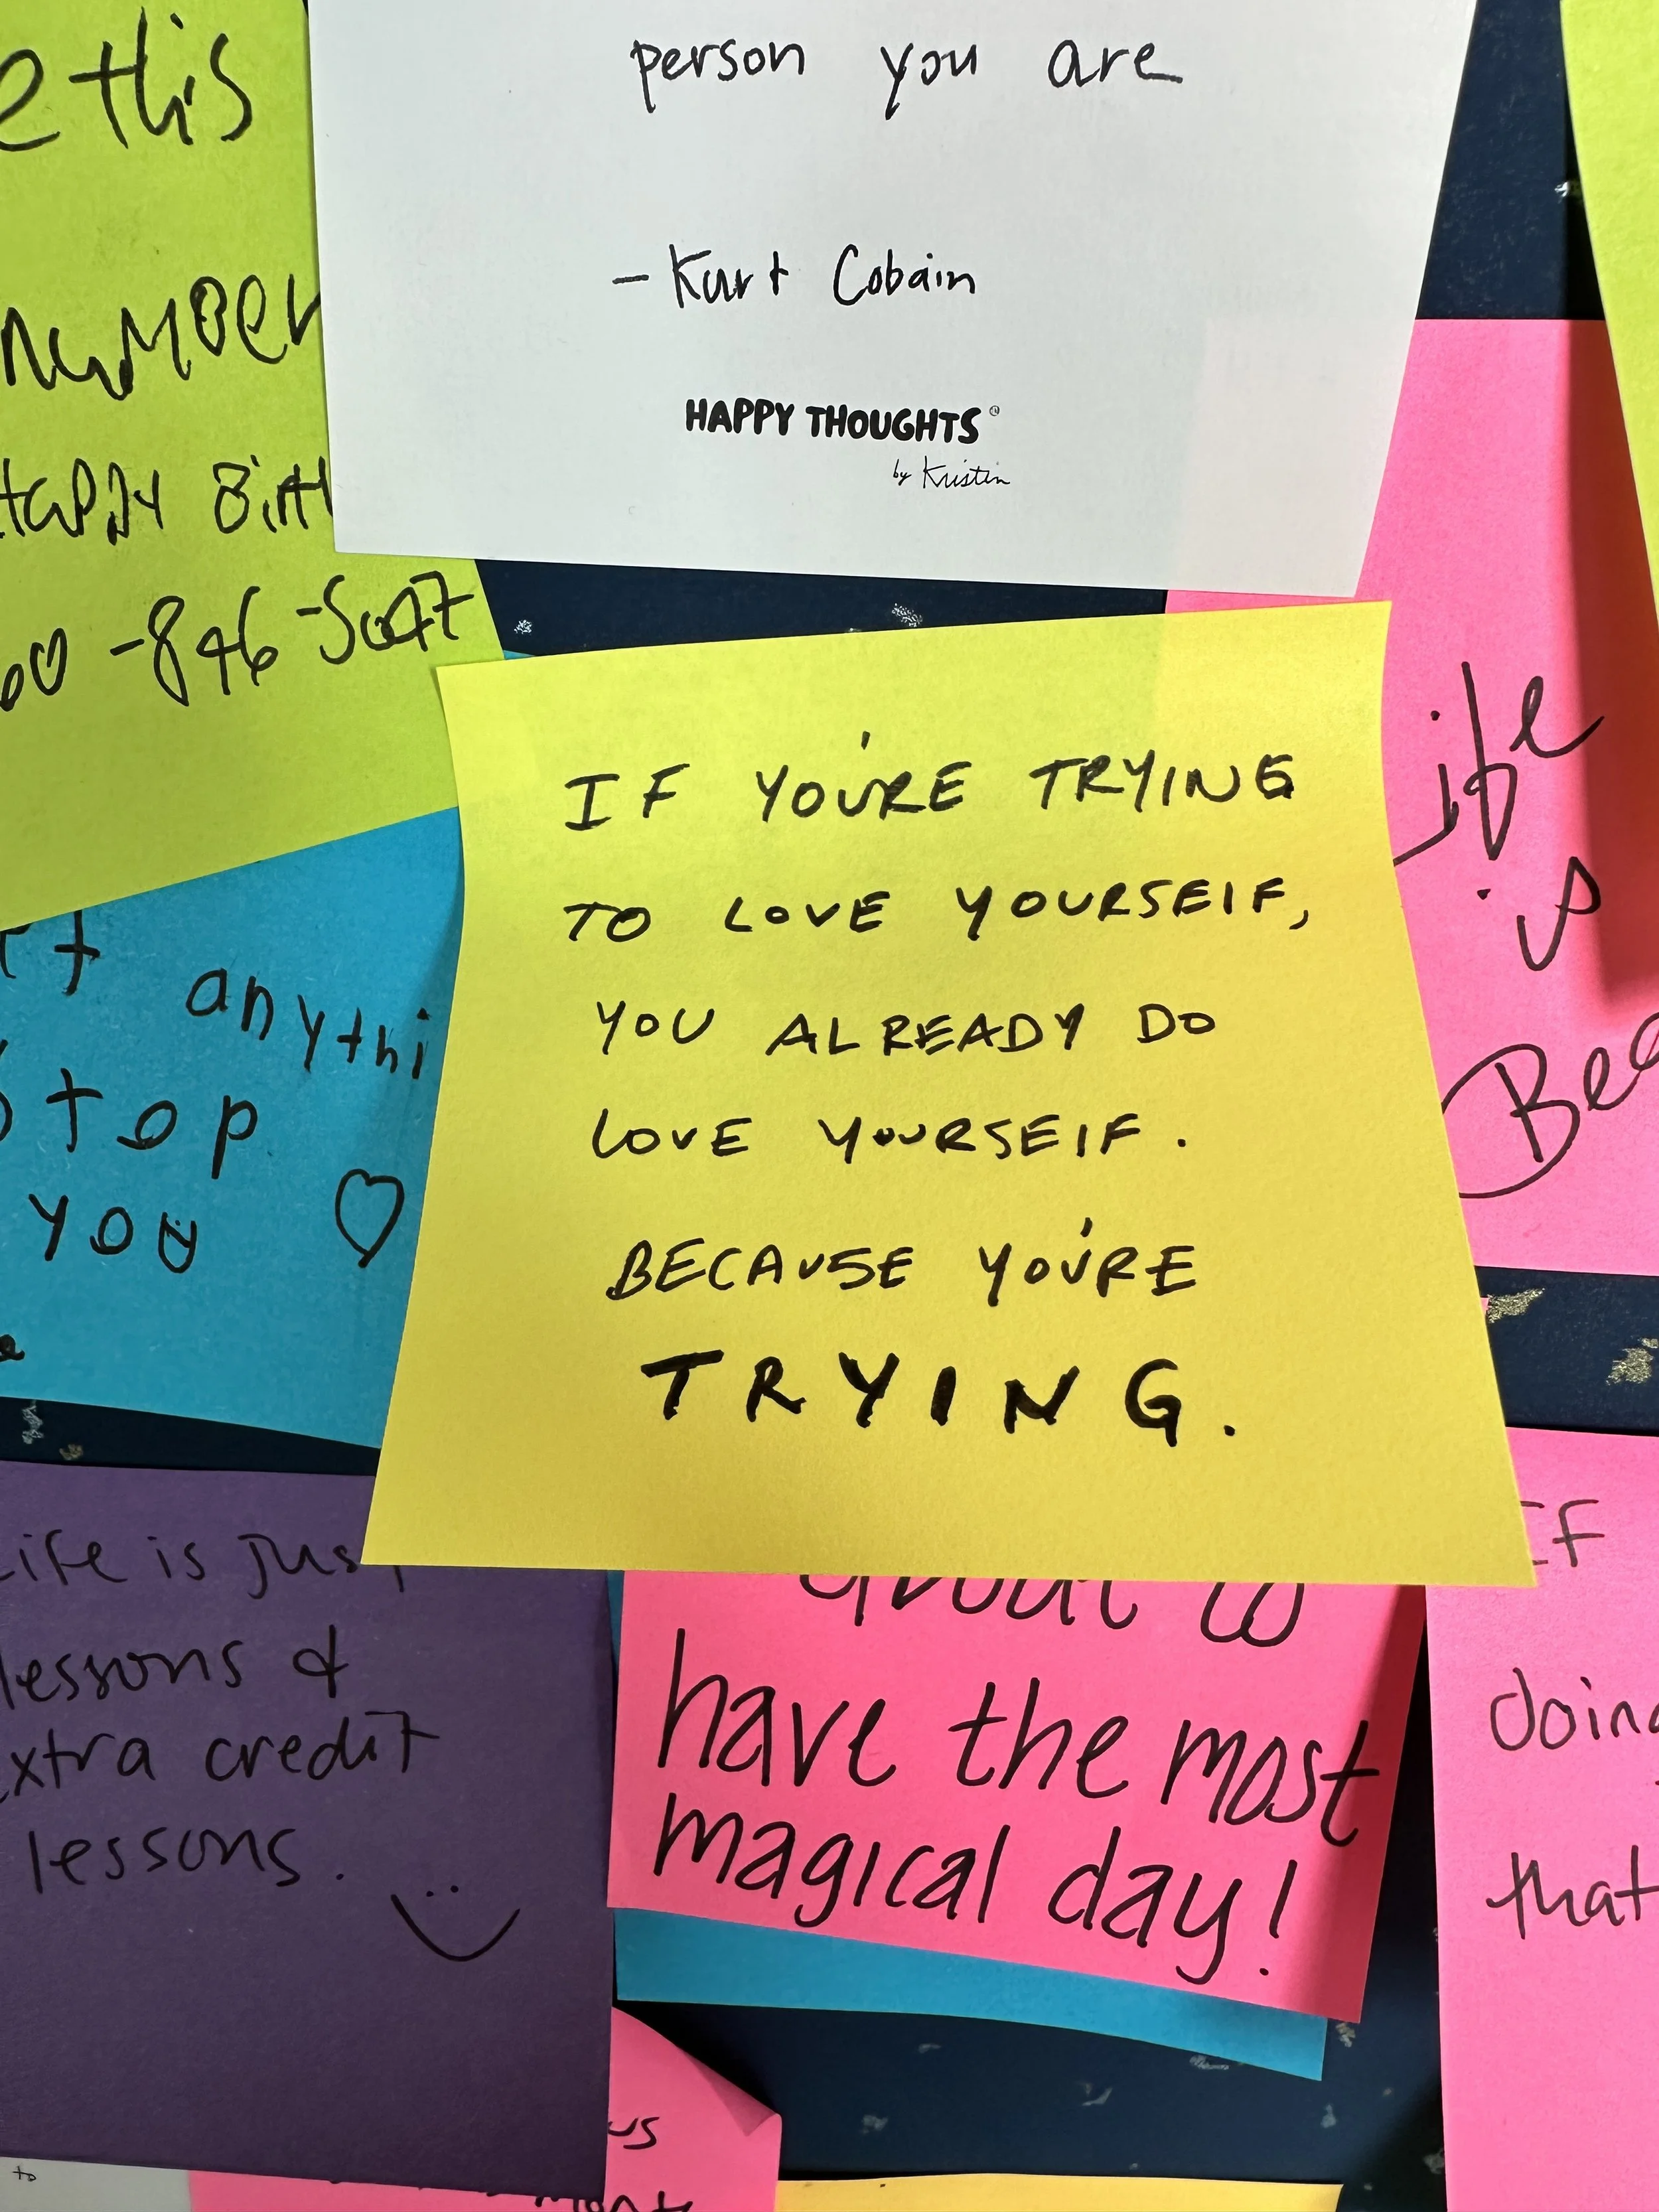 person you are
- Kurt Cobain
HAPPY THOUGHTS®
by Kristin
e this
number
Happy Birth
60 -846-5047
anythi
stop
you ♡
IF YOU'RE TRYING
TO LOVE YOURSELF,
YOU ALREADY DO
LOVE YOURSELF.
BECAUSE YOU'RE
TRYING.
Life
is
Bea
Life is just
lessons &
extra credit
lessons.
about to
have the most
magical day!
IF
doing
that
us
to